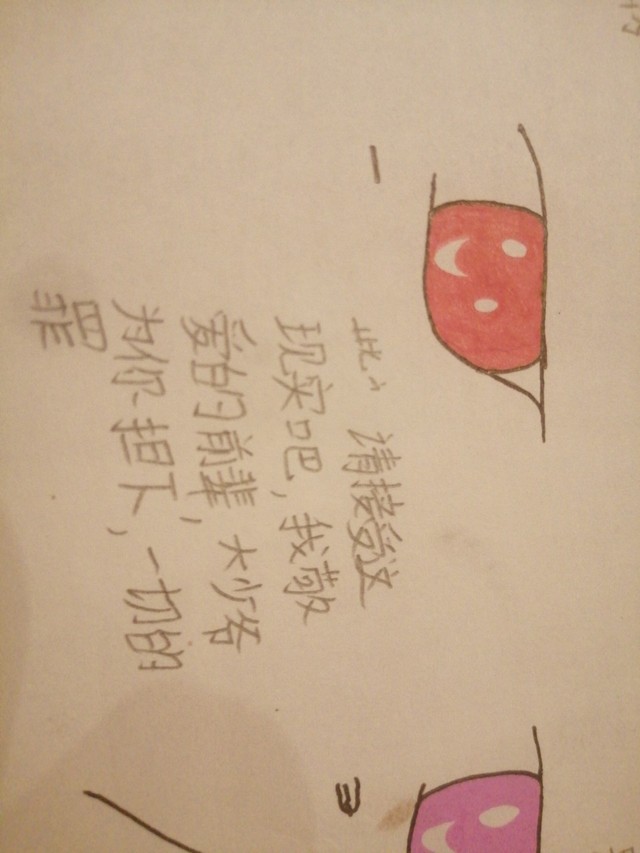 请接受这
现实吧，我敬
爱的前辈，大少爷
为你担下，一切的
罪